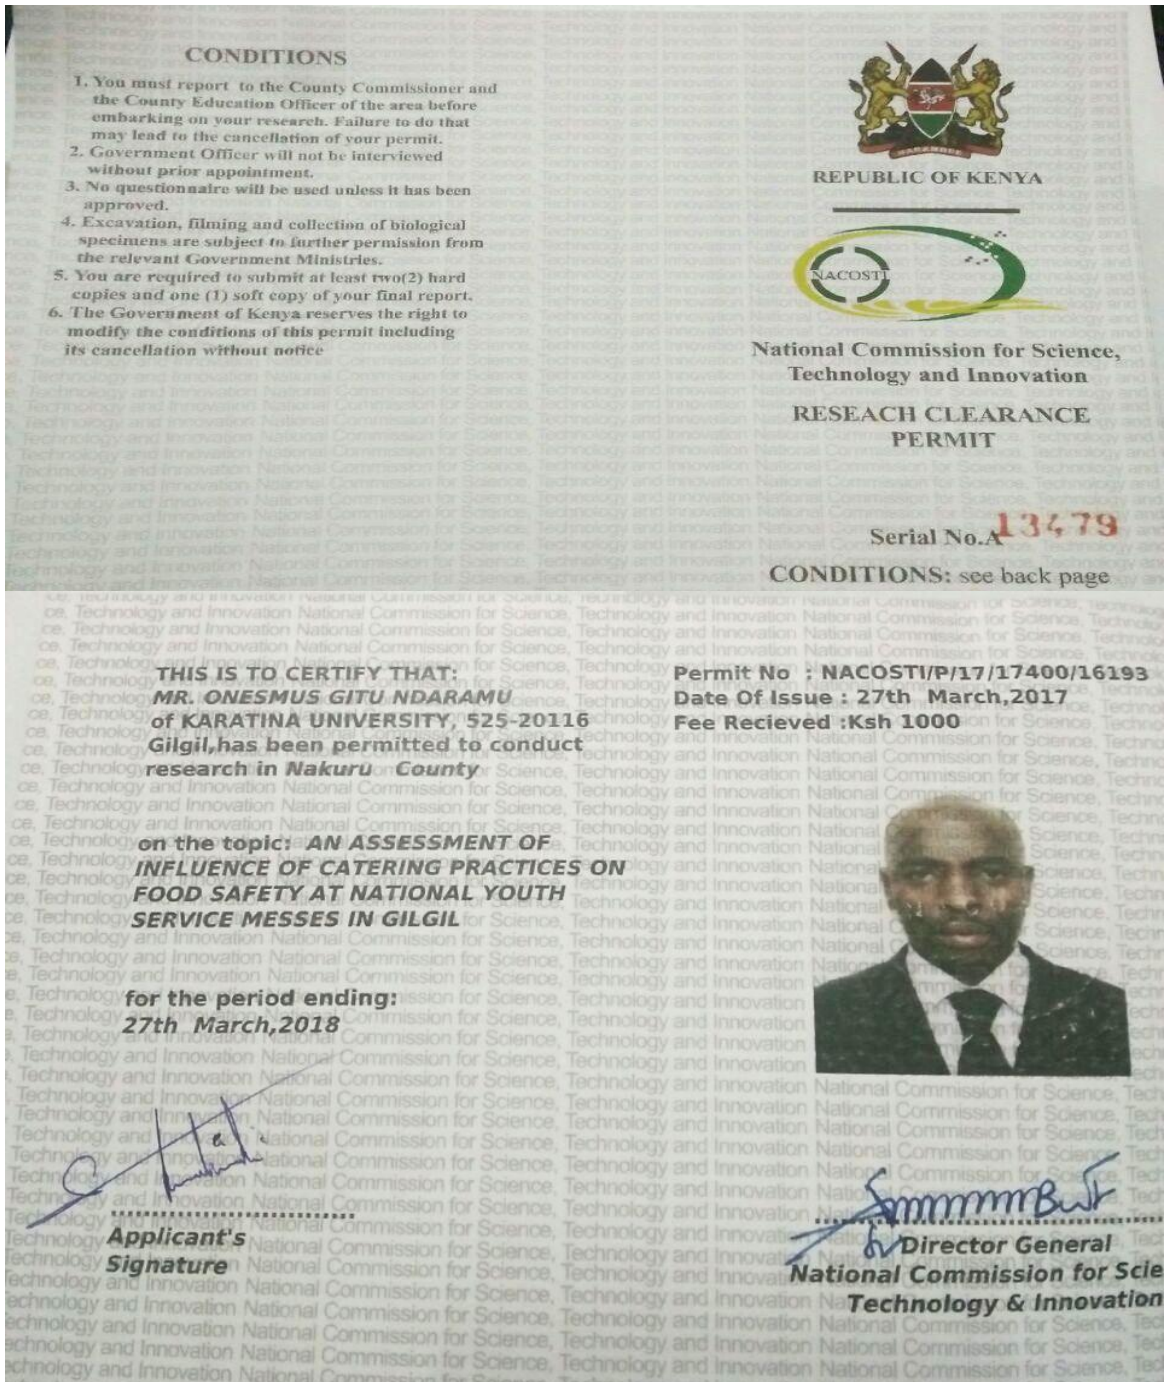 CONDITIONS
1. You must report to the County Commissioner and
the County Education Officer of the area before
embarking on your research. Failure to do that
may lead to the cancellation of your permit.
2. Government Officer will not be interviewed
without prior appointment.
3. No questionnaire will be used unless it has been
approved.
4. Excavation, filming and collection of biological
specimens are subject to further permission from
the relevant Government Ministries.
5. You are required to submit at least two(2) hard
copies and one (1) soft copy of your final report.
6. The Government of Kenya reserves the right to
modify the conditions of this permit including
its cancellation without notice
HARAMBEE
REPUBLIC OF KENYA
NACOSTI
National Commission for Science,
Technology and Innovation
RESEACH CLEARANCE
PERMIT
Serial No.A 13479
CONDITIONS: see back page
THIS IS TO CERTIFY THAT:
MR. ONESMUS GITU NDARAMU
of KARATINA UNIVERSITY, 525-20116
Gilgil,has been permitted to conduct
research in Nakuru County
on the topic: AN ASSESSMENT OF
INFLUENCE OF CATERING PRACTICES ON
FOOD SAFETY AT NATIONAL YOUTH
SERVICE MESSES IN GILGIL
for the period ending:
27th March,2018
Applicant's
Signature
Permit No : NACOSTI/P/17/17400/16193
Date Of Issue : 27th March,2017
Fee Recieved :Ksh 1000
Director General
National Commission for Scie
Technology & Innovation